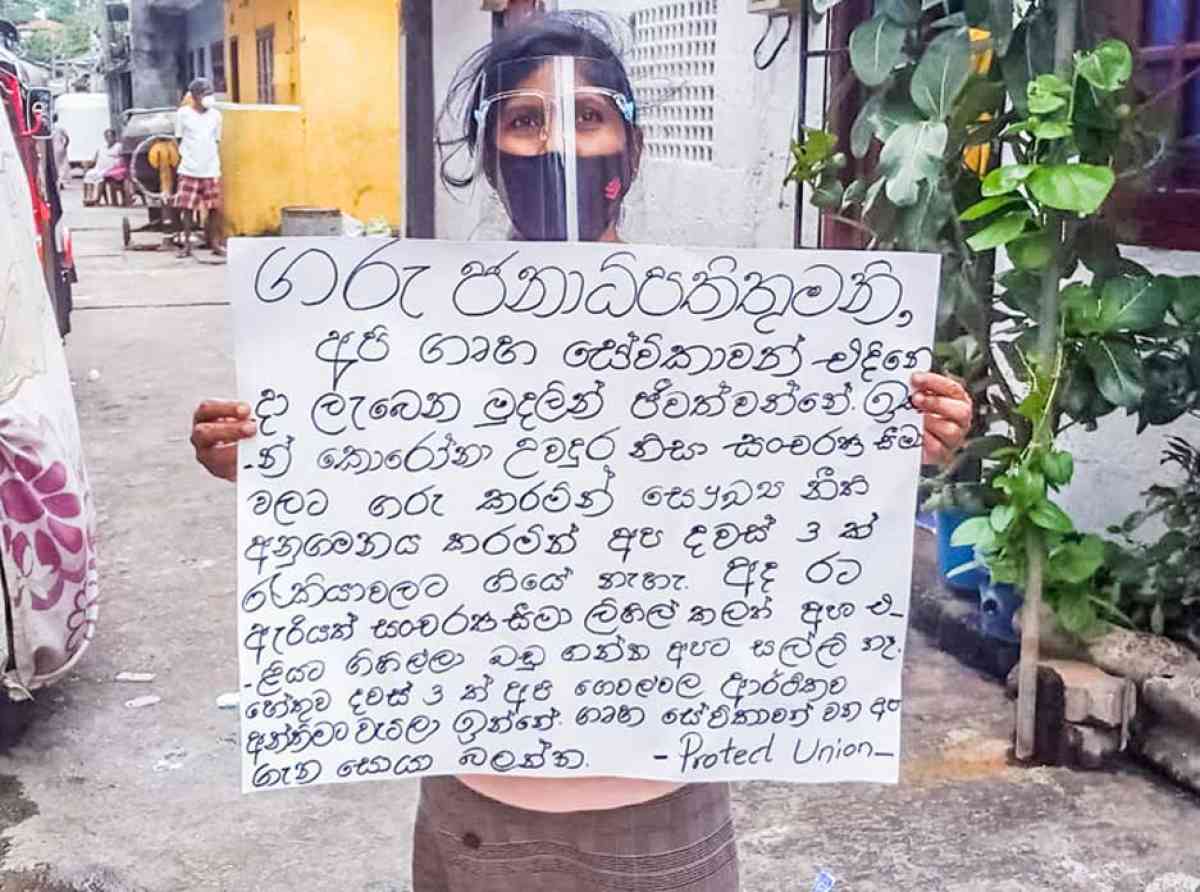 ගරු ජනාධිපතිතුමනි,
අපි ගෘහ සේවිකාවන් එදිනෙ
දා ලැබෙන මුදලින් ජීවත්වන්නේ. ඉස
-න් කොරෝනා උවදුර නිසා සංචරණ සීමා
වලට ගරු කරමින් සෞඛ්‍ය නීති
අනුගමනය කරමින් අප දවස් 3 ක්
රැකියාවලට ගියේ නැහැ. අද රට
ඇරියත් සංචරණ සීමා ලිහිල් කලත් අප එ-
-ළියට ගිහිල්ලා බඩු ගන්න අපට සල්ලි නෑ.
හේතුව දවස් 3 ක් අපි ගෙවල්වල ආර්ථිකව
අන්තිමට වැටිලා ඉන්නේ. ගෘහ සේවිකාවන් වන අප
ගැන සොයා බලන්න. - Protect Union -